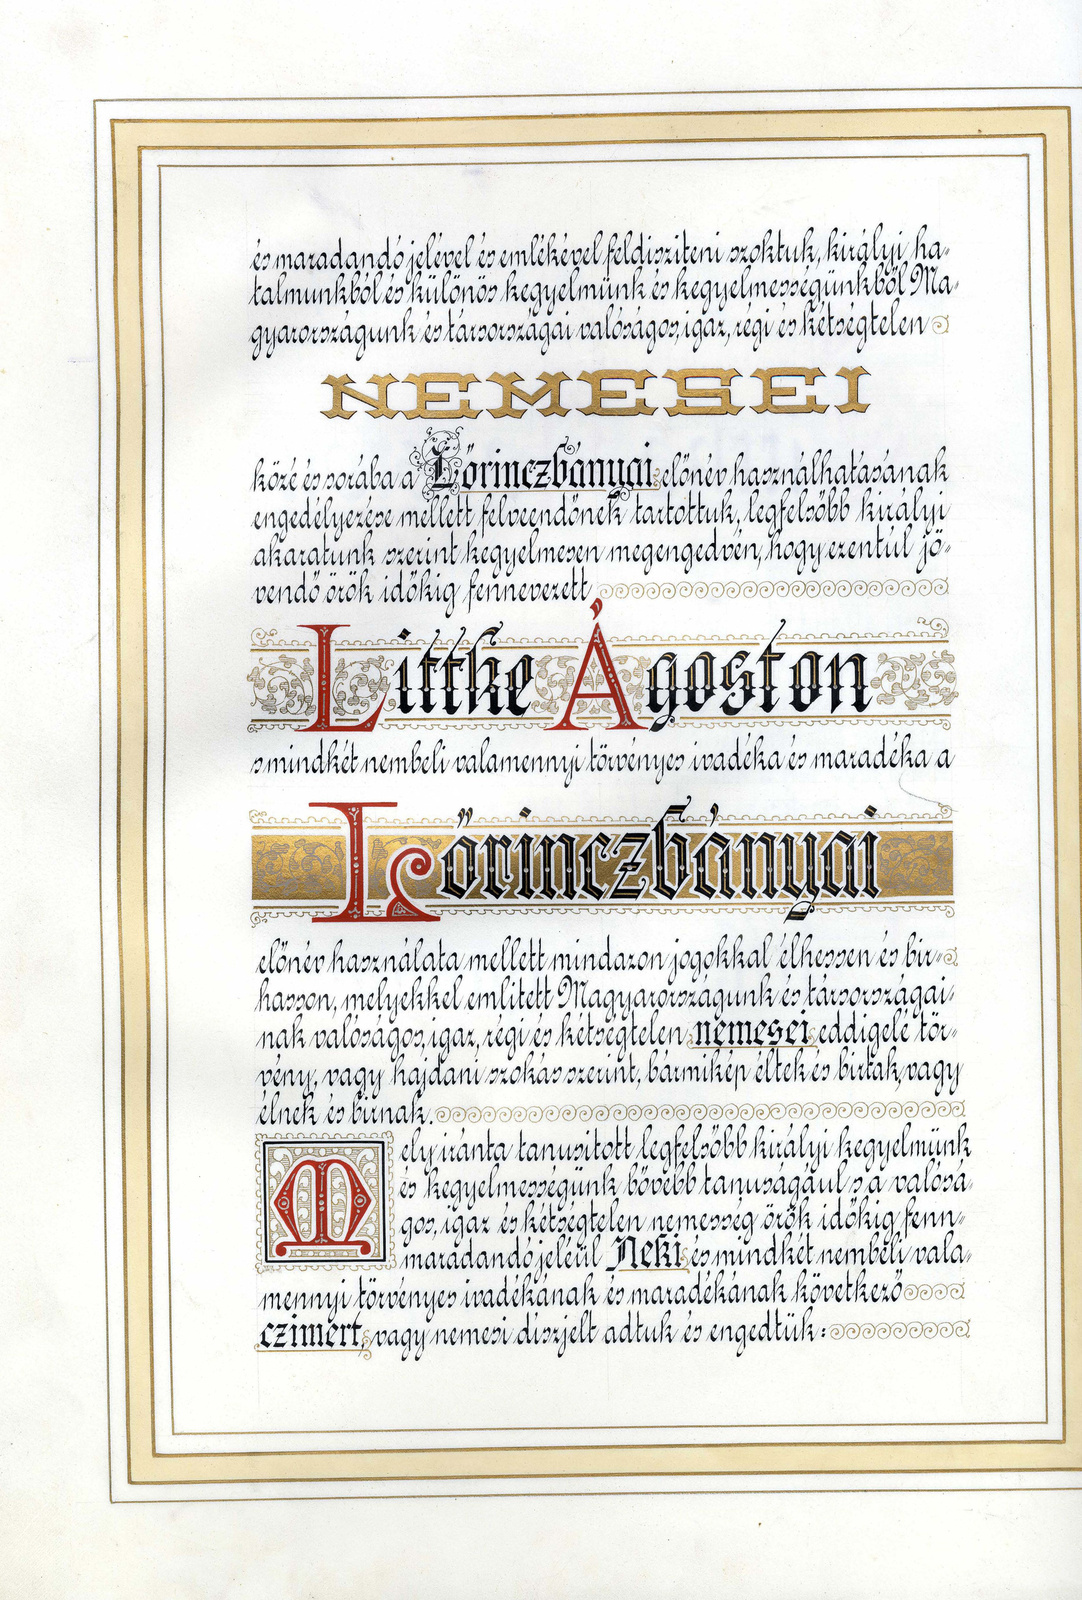 és maradandó jelével és emlékével feldisziteni szoktuk, királyi ha-
talmunkból és különös kegyelmünk és kegyelmességünkből Ma-
gyarországunk és társországai valóságos, igaz, régi és kétségtelen
NEMESEI
közé és sorába a Lőrinczbányai előnév használhatásának
engedélyezése mellett felveendőnek tartottuk, legfelsőbb királyi
akaratunk szerint kegyelmesen megengedvén, hogy ezentúl jö-
vendő örök időkig fennevezett
Littke Ágoston
s mindkét nembeli valamennyi törvényes ivadéka és maradéka a
Lőrinczbányai
előnév használata mellett mindazon jogokkal élhessen és bir-
hasson, melyekkel emlitett Magyarországunk és társországai-
nak valóságos, igaz, régi és kétségtelen nemesei eddigelé tör-
vény, vagy hajdani szokás szerint, bármikép éltek és birtak, vagy
élnek és birnak.
Mely iránta tanusitott legfelsőbb királyi kegyelmünk
és kegyelmességünk bővebb tanuságául s a valósá-
gos, igaz és kétségtelen nemesség örök időkig fenn-
maradandó jeléül Neki és mindkét nembeli vala-
mennyi törvényes ivadékának és maradékának következő
czimert, vagy nemesi diszjelt adtuk és engedtük: